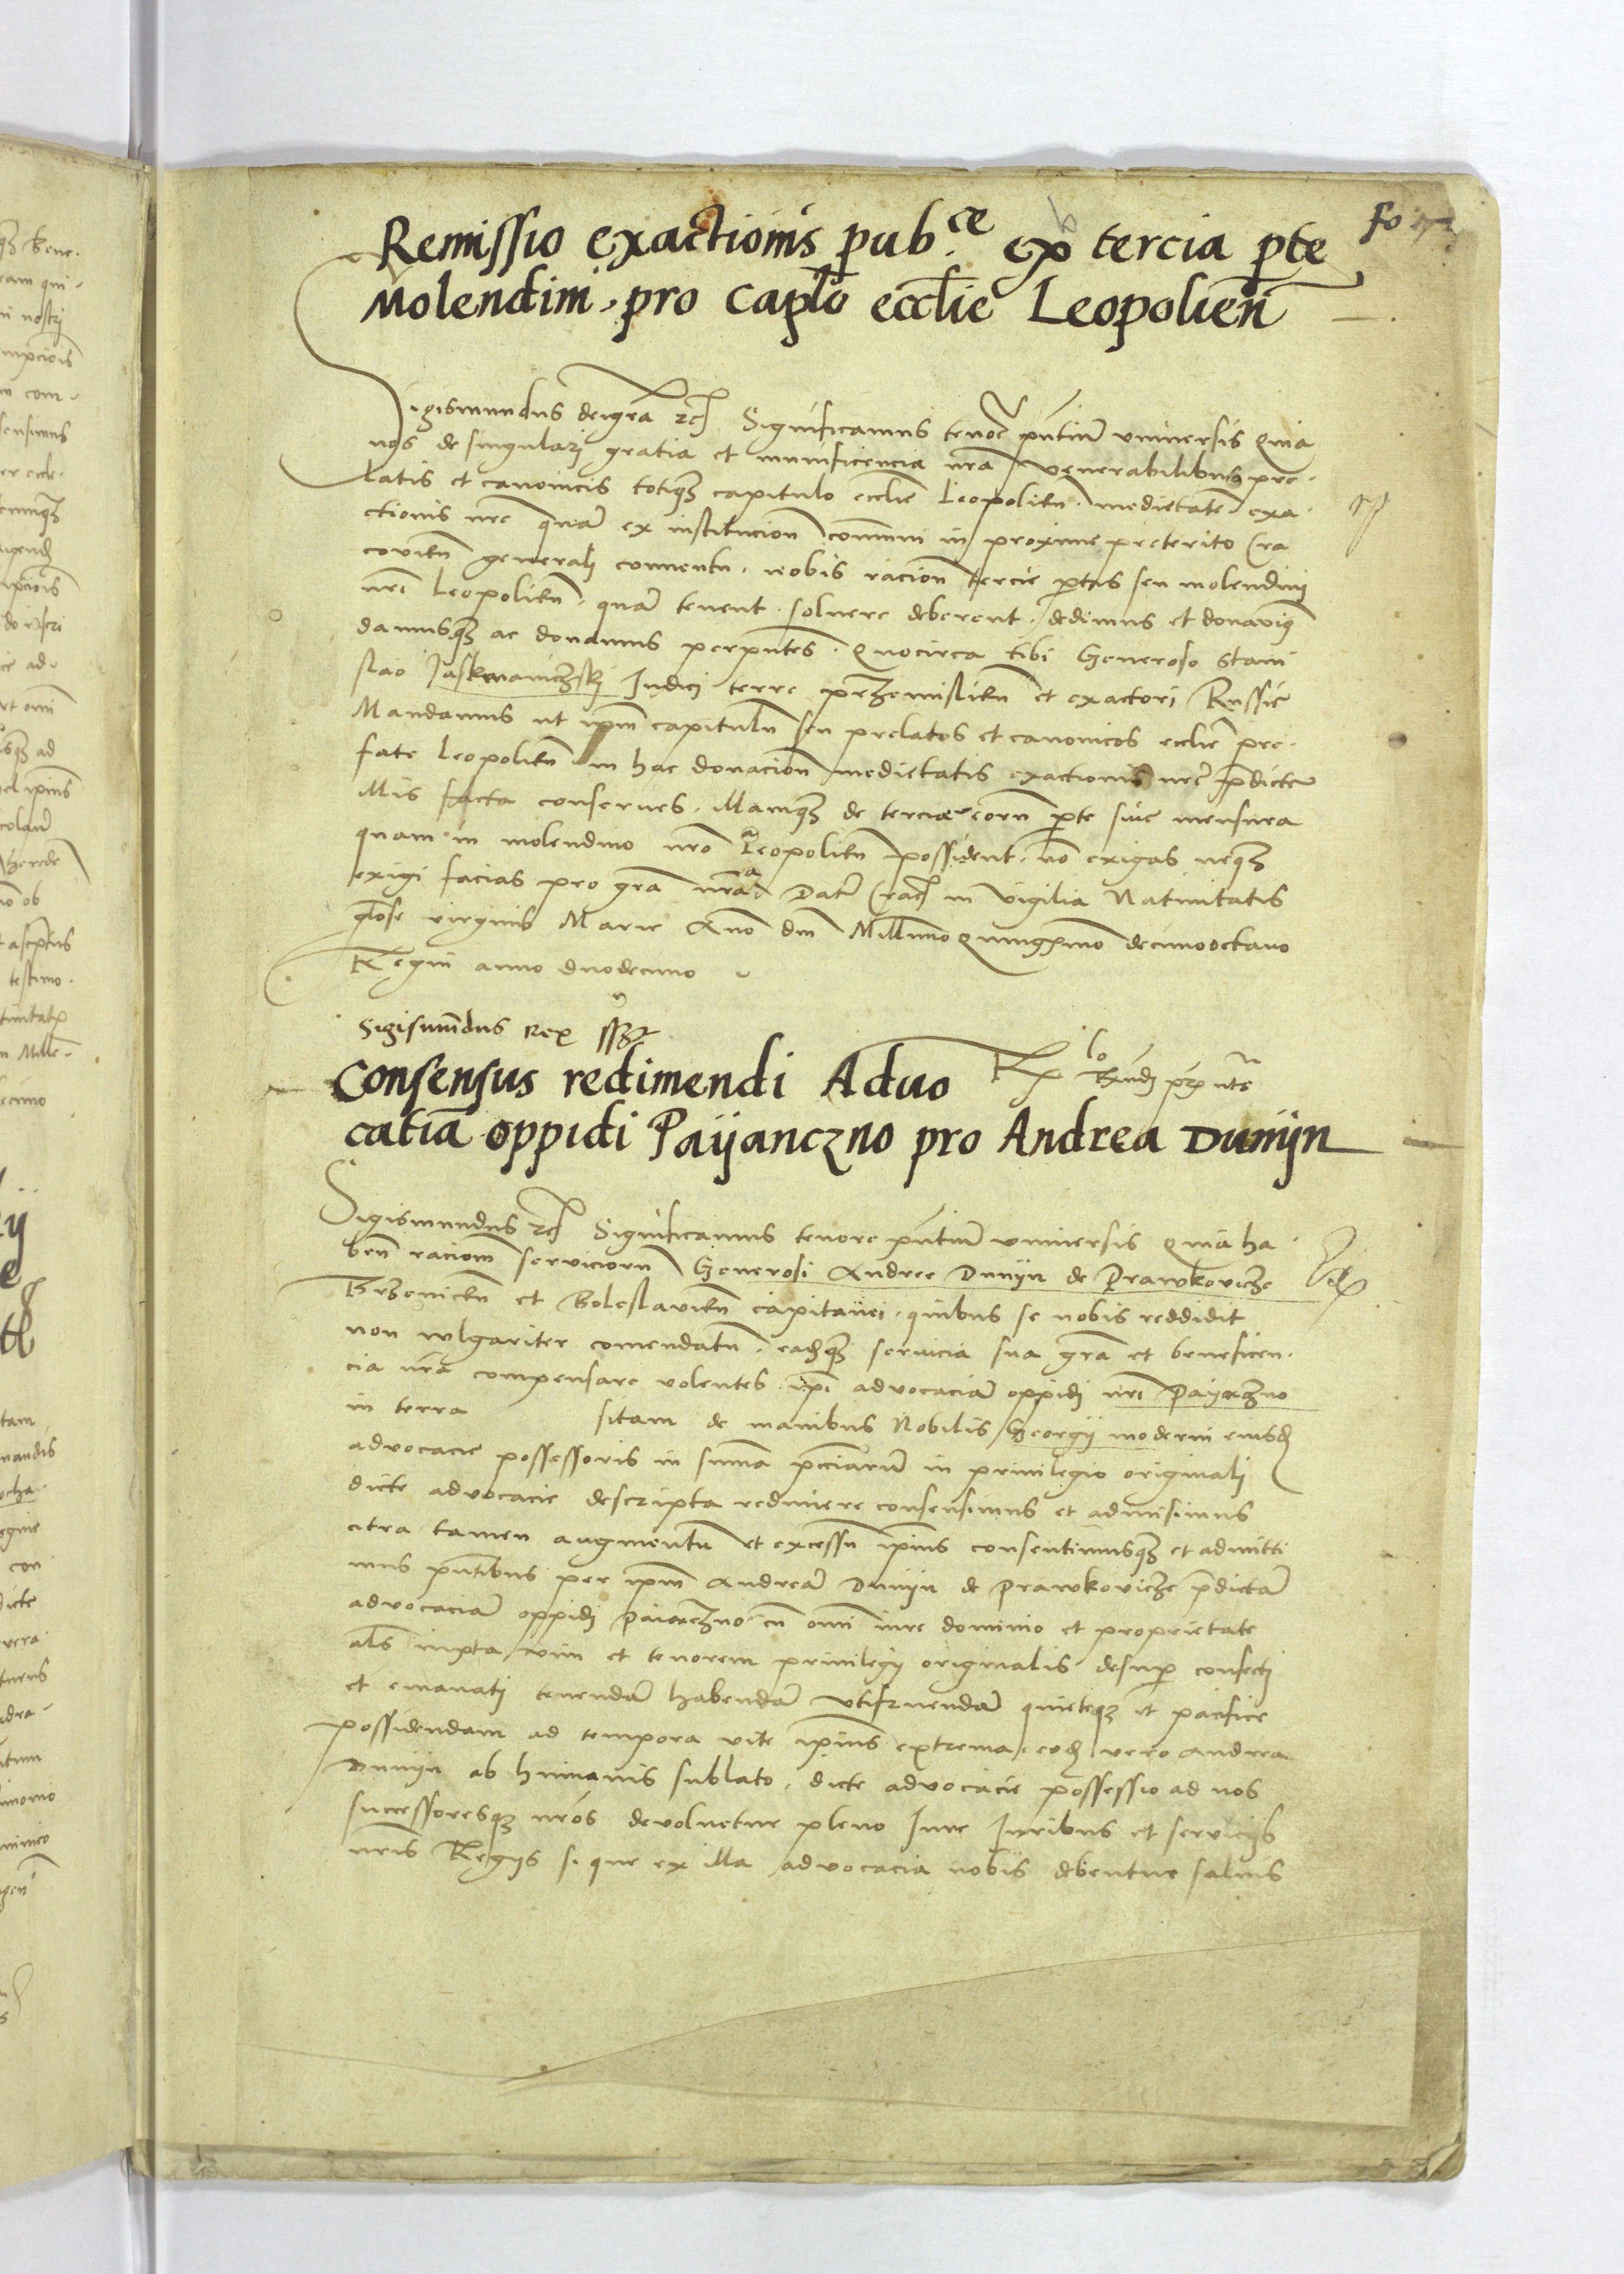 Remissio exactionis pub.ce ex tercia pte
Molendini pro caplo ecclie Leopolien
Sigismundus dei gra etc Significamus tenore pntium universis Quia
nos de singulari gratia et munificencia nra venerabilibus pre
latis et canonicis totiq3 capitulo ecclie Leopolien medietatem exa
ctionis nre quam ex institucione communi in proxime preterito Cra
covien generali conventu nobis racione tercie partis seu molendini
nri Leopolien quam tenent solvere deberent dedimus et donavimq
damusq3 ac donamus per pntes Quocirca tibi Generoso Stani
slao Jaskmaniczski Iudici terre przemislien et exactori Russie
Mandamus ut ipm capitulum seu prelatos et canonicos ecclie pre
fate Leopolien in hac donacione medietatis exactionis nre pdicte
illis facta conserves illamq3 de tercia eorum parte sive mensura
quam in molendino nro Leopolien possident no exigas neq3
exigi facias pro gra nra Dat Crac in vigilia Nativitatis
gloriose virginis Marie Anno dni Millimo Quingmo decimooctavo
Regni anno duodecimo
Sigismundus Rex ssz
Consensus redimendi Advo
catia oppidi Paijanczno pro Andrea Dunijn
Sigismundus etc Significamus tenore pntium universis Quia ha
ben racionem serviciorum Generosi Andree Dunijn de Prawkovicze
Krzepicien et Boleslavien capitanei quibus se nobis reddidit
non vulgariter comendatum eadq3 servicia sua gra et beneficen
cia nra compensare volentes ipi advocaciam oppidi nri Payaczno
in terra sitam de manibus Nobilis Georgij moderni eiusd
advocacie possessoris in summa pcciarum in privilegio originali
dicte advocacie descripta redimere consensimus et admisimus
citra tamen augmentum et excessum ipius consentimusq3 et admitti
mus pntibus per ipm Andream Dunijn de Prawkovicze pdictam
advocaciam oppidi Paiaczno cu omi iure dominio et proprietate
als iuxta vim et tenorem privilegij originalis desup confecti
et emanati tenendam habendam utifruendam quieteq3 et pacifice
possidendam ad tempora vite ipius extrema eod vero Andrea
Dunijn ab humanis sublato dicte advocacie possessio ad nos
successoresq3 nros devoluetur pleno Iure Iuribus et servicijs
nris Regijs si que ex illa advocacia nobis debentur salvis